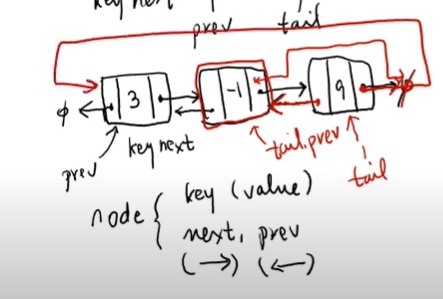 key next
prev
tail
φ
3
-1
9
φ
prev
key next
tail.prev
tail
node { key (value)
next, prev
(→) (←)